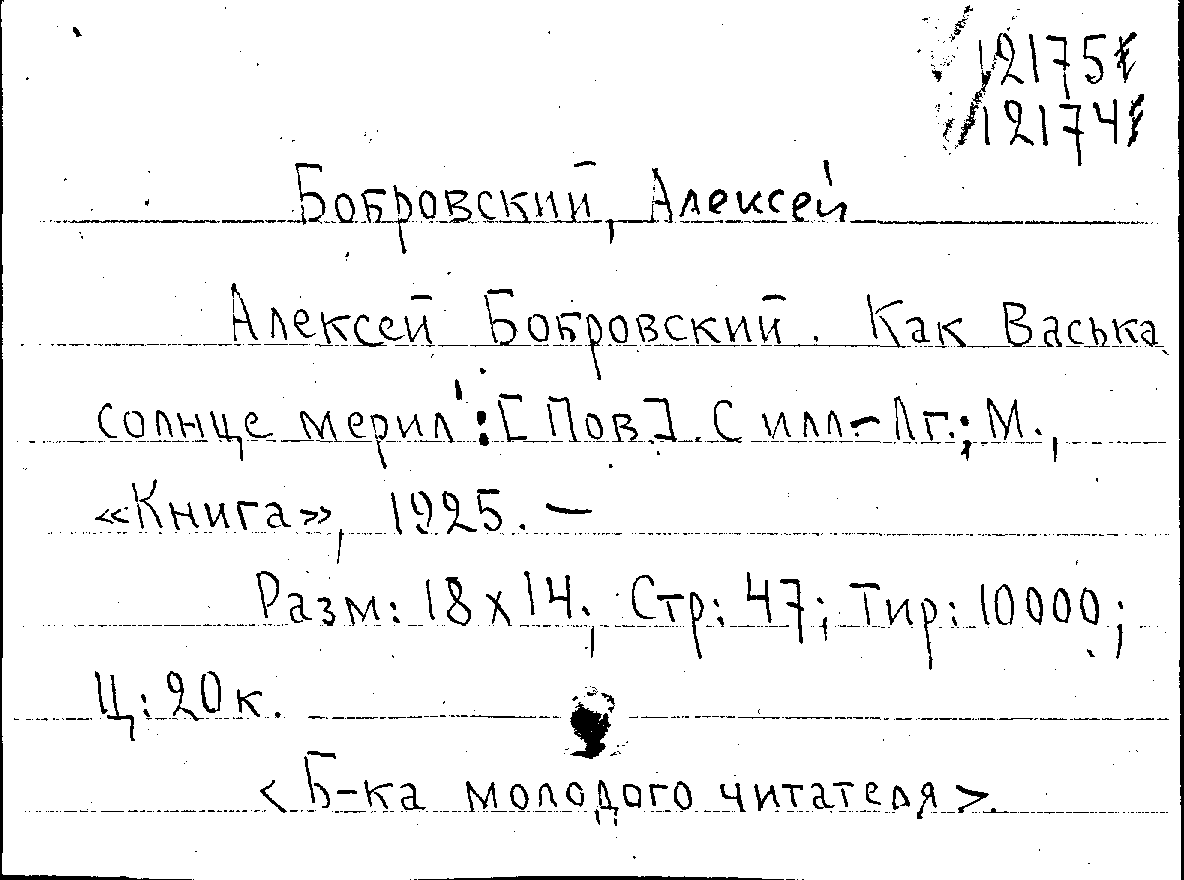 12175
12174
Бобровский, Алексей
Алексей Бобровский. Как Васька
солнце мерил: [Пов]. С илл.–Лг.; М.,
«Книга», 1925. –
Разм: 18 x 14; Стр: 47; Тир: 10000;
Ц: 20 к.
<Б-ка молодого читателя>.